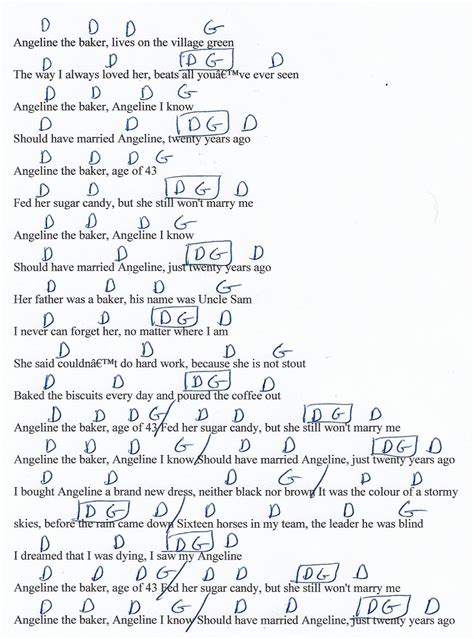 D D D G
Angeline the baker, lives on the village green
D D D G D
The way I always loved her, beats all youâ€™ve ever seen
D D D G
Angeline the baker, Angeline I know
D D D G D
Should have married Angeline, twenty years ago
D D D G
Angeline the baker, age of 43
D D D G D
Fed her sugar candy, but she still won't marry me
D D D G
Angeline the baker, Angeline I know
D D D G D
Should have married Angeline, just twenty years ago
D D D G
Her father was a baker, his name was Uncle Sam
D D D G D
I never can forget her, no matter where I am
D D G
She said couldnâ€™t do hard work, because she is not stout
D D D G D
Baked the biscuits every day and poured the coffee out
D D D G / D D D G D
Angeline the baker, age of 43 Fed her sugar candy, but she still won't marry me
D D D G / D D D G D
Angeline the baker, Angeline I know Should have married Angeline, just twenty years ago
D D D G / D D
I bought Angeline a brand new dress, neither black nor brown It was the colour of a stormy
D G D / D D D G
skies, before the rain came down Sixteen horses in my team, the leader he was blind
D D D G D
I dreamed that I was dying, I saw my Angeline
D D D G / D D D G D
Angeline the baker, age of 43 Fed her sugar candy, but she still won't marry me
D D D G / D D D G D
Angeline the baker, Angeline I know Should have married Angeline, just twenty years ago